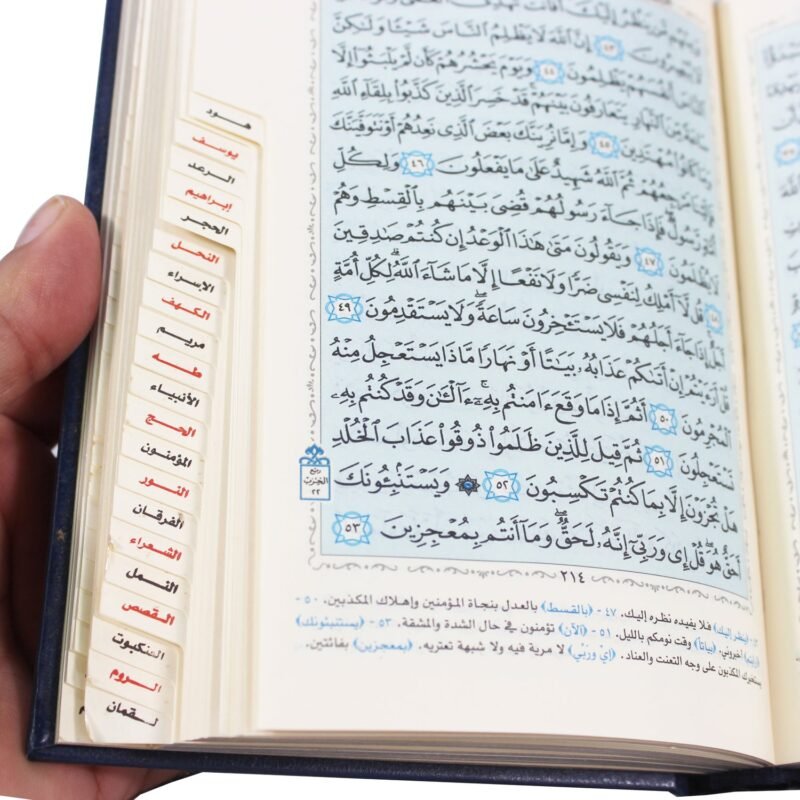 وَمِنْهُم مَّن يَنظُرُ إِلَيْكَ أَفَأَنتَ تَهْدِى الْعُمْىَ وَلَوْ
لَا يُبْصِرُونَ ٤٣ إِنَّ اللَّهَ لَا يَظْلِمُ النَّاسَ شَيْئًا وَلَٰكِنَّ
النَّاسَ أَنفُسَهُمْ يَظْلِمُونَ ٤٤ وَيَوْمَ يَحْشُرُهُمْ كَأَن لَّمْ يَلْبَثُوٓا۟ إِلَّا
سَاعَةً مِّنَ النَّهَارِ يَتَعَارَفُونَ بَيْنَهُمْ قَدْ خَسِرَ الَّذِينَ كَذَّبُوا۟ بِلِقَآءِ اللَّهِ
وَمَا كَانُوا۟ مُهْتَدِينَ ٤٥ وَإِمَّا نُرِيَنَّكَ بَعْضَ الَّذِى نَعِدُهُمْ أَوْ نَتَوَفَّيَنَّكَ
فَإِلَيْنَا مَرْجِعُهُمْ ثُمَّ اللَّهُ شَهِيدٌ عَلَىٰ مَا يَفْعَلُونَ ٤٦ وَلِكُلِّ
أُمَّةٍ رَّسُولٌ فَإِذَا جَآءَ رَسُولُهُمْ قُضِىَ بَيْنَهُم بِالْقِسْطِ وَهُمْ
لَا يُظْلَمُونَ ٤٧ وَيَقُولُونَ مَتَىٰ هَٰذَا الْوَعْدُ إِن كُنتُمْ صَٰدِقِينَ
٤٨ قُل لَّآ أَمْلِكُ لِنَفْسِى ضَرًّا وَلَا نَفْعًا إِلَّا مَا شَآءَ اللَّهُ ۗ لِكُلِّ أُمَّةٍ
أَجَلٌ إِذَا جَآءَ أَجَلُهُمْ فَلَا يَسْتَـْٔخِرُونَ سَاعَةً ۖ وَلَا يَسْتَقْدِمُونَ ٤٩
قُلْ أَرَءَيْتُمْ إِنْ أَتَىٰكُمْ عَذَابُهُۥ بَيَٰتًا أَوْ نَهَارًا مَّاذَا يَسْتَعْجِلُ مِنْهُ
الْمُجْرِمُونَ ٥٠ أَثُمَّ إِذَا مَا وَقَعَ ءَامَنتُم بِهِۦٓ ۚ ءَآلْـَٰٔنَ وَقَدْ كُنتُم بِهِۦ
تَسْتَعْجِلُونَ ٥١ ثُمَّ قِيلَ لِلَّذِينَ ظَلَمُوا۟ ذُوقُوا۟ عَذَابَ الْخُلْدِ
هَلْ تُجْزَوْنَ إِلَّا بِمَا كُنتُمْ تَكْسِبُونَ ٥٢ ۞ وَيَسْتَنۢبِـُٔونَكَ
أَحَقٌّ هُوَ ۖ قُلْ إِى وَرَبِّىٓ إِنَّهُۥ لَحَقٌّ ۖ وَمَآ أَنتُم بِمُعْجِزِينَ ٥٣
ربع
الحزب
٢٢
٢١٤
﴿ينظر إليك﴾ فلا يفيده نظره إليك. ٤٧ - ﴿بالقسط﴾ بالعدل بنجاة المؤمنين وإهلاك المكذبين. ٥٠ -
أخبروني. ﴿بياتاً﴾ وقت نومكم بالليل. ٥١ - ﴿آلآن﴾ تؤمنون في حال الشدة والمشقة. ٥٣ - ﴿يستنبئونك﴾
يستخبرك المكذبون على وجه التعنت والعناد. ﴿إي وربي﴾ لا مرية فيه ولا شبهة تعتريه. ﴿بمعجزين﴾ بفائتين.
هود
يوسف
الرعد
إبراهيم
الحجر
النحل
الإسراء
الكهف
مريم
طه
الأنبياء
الحج
المؤمنون
النور
الفرقان
الشعراء
النمل
القصص
العنكبوت
الروم
لقمان